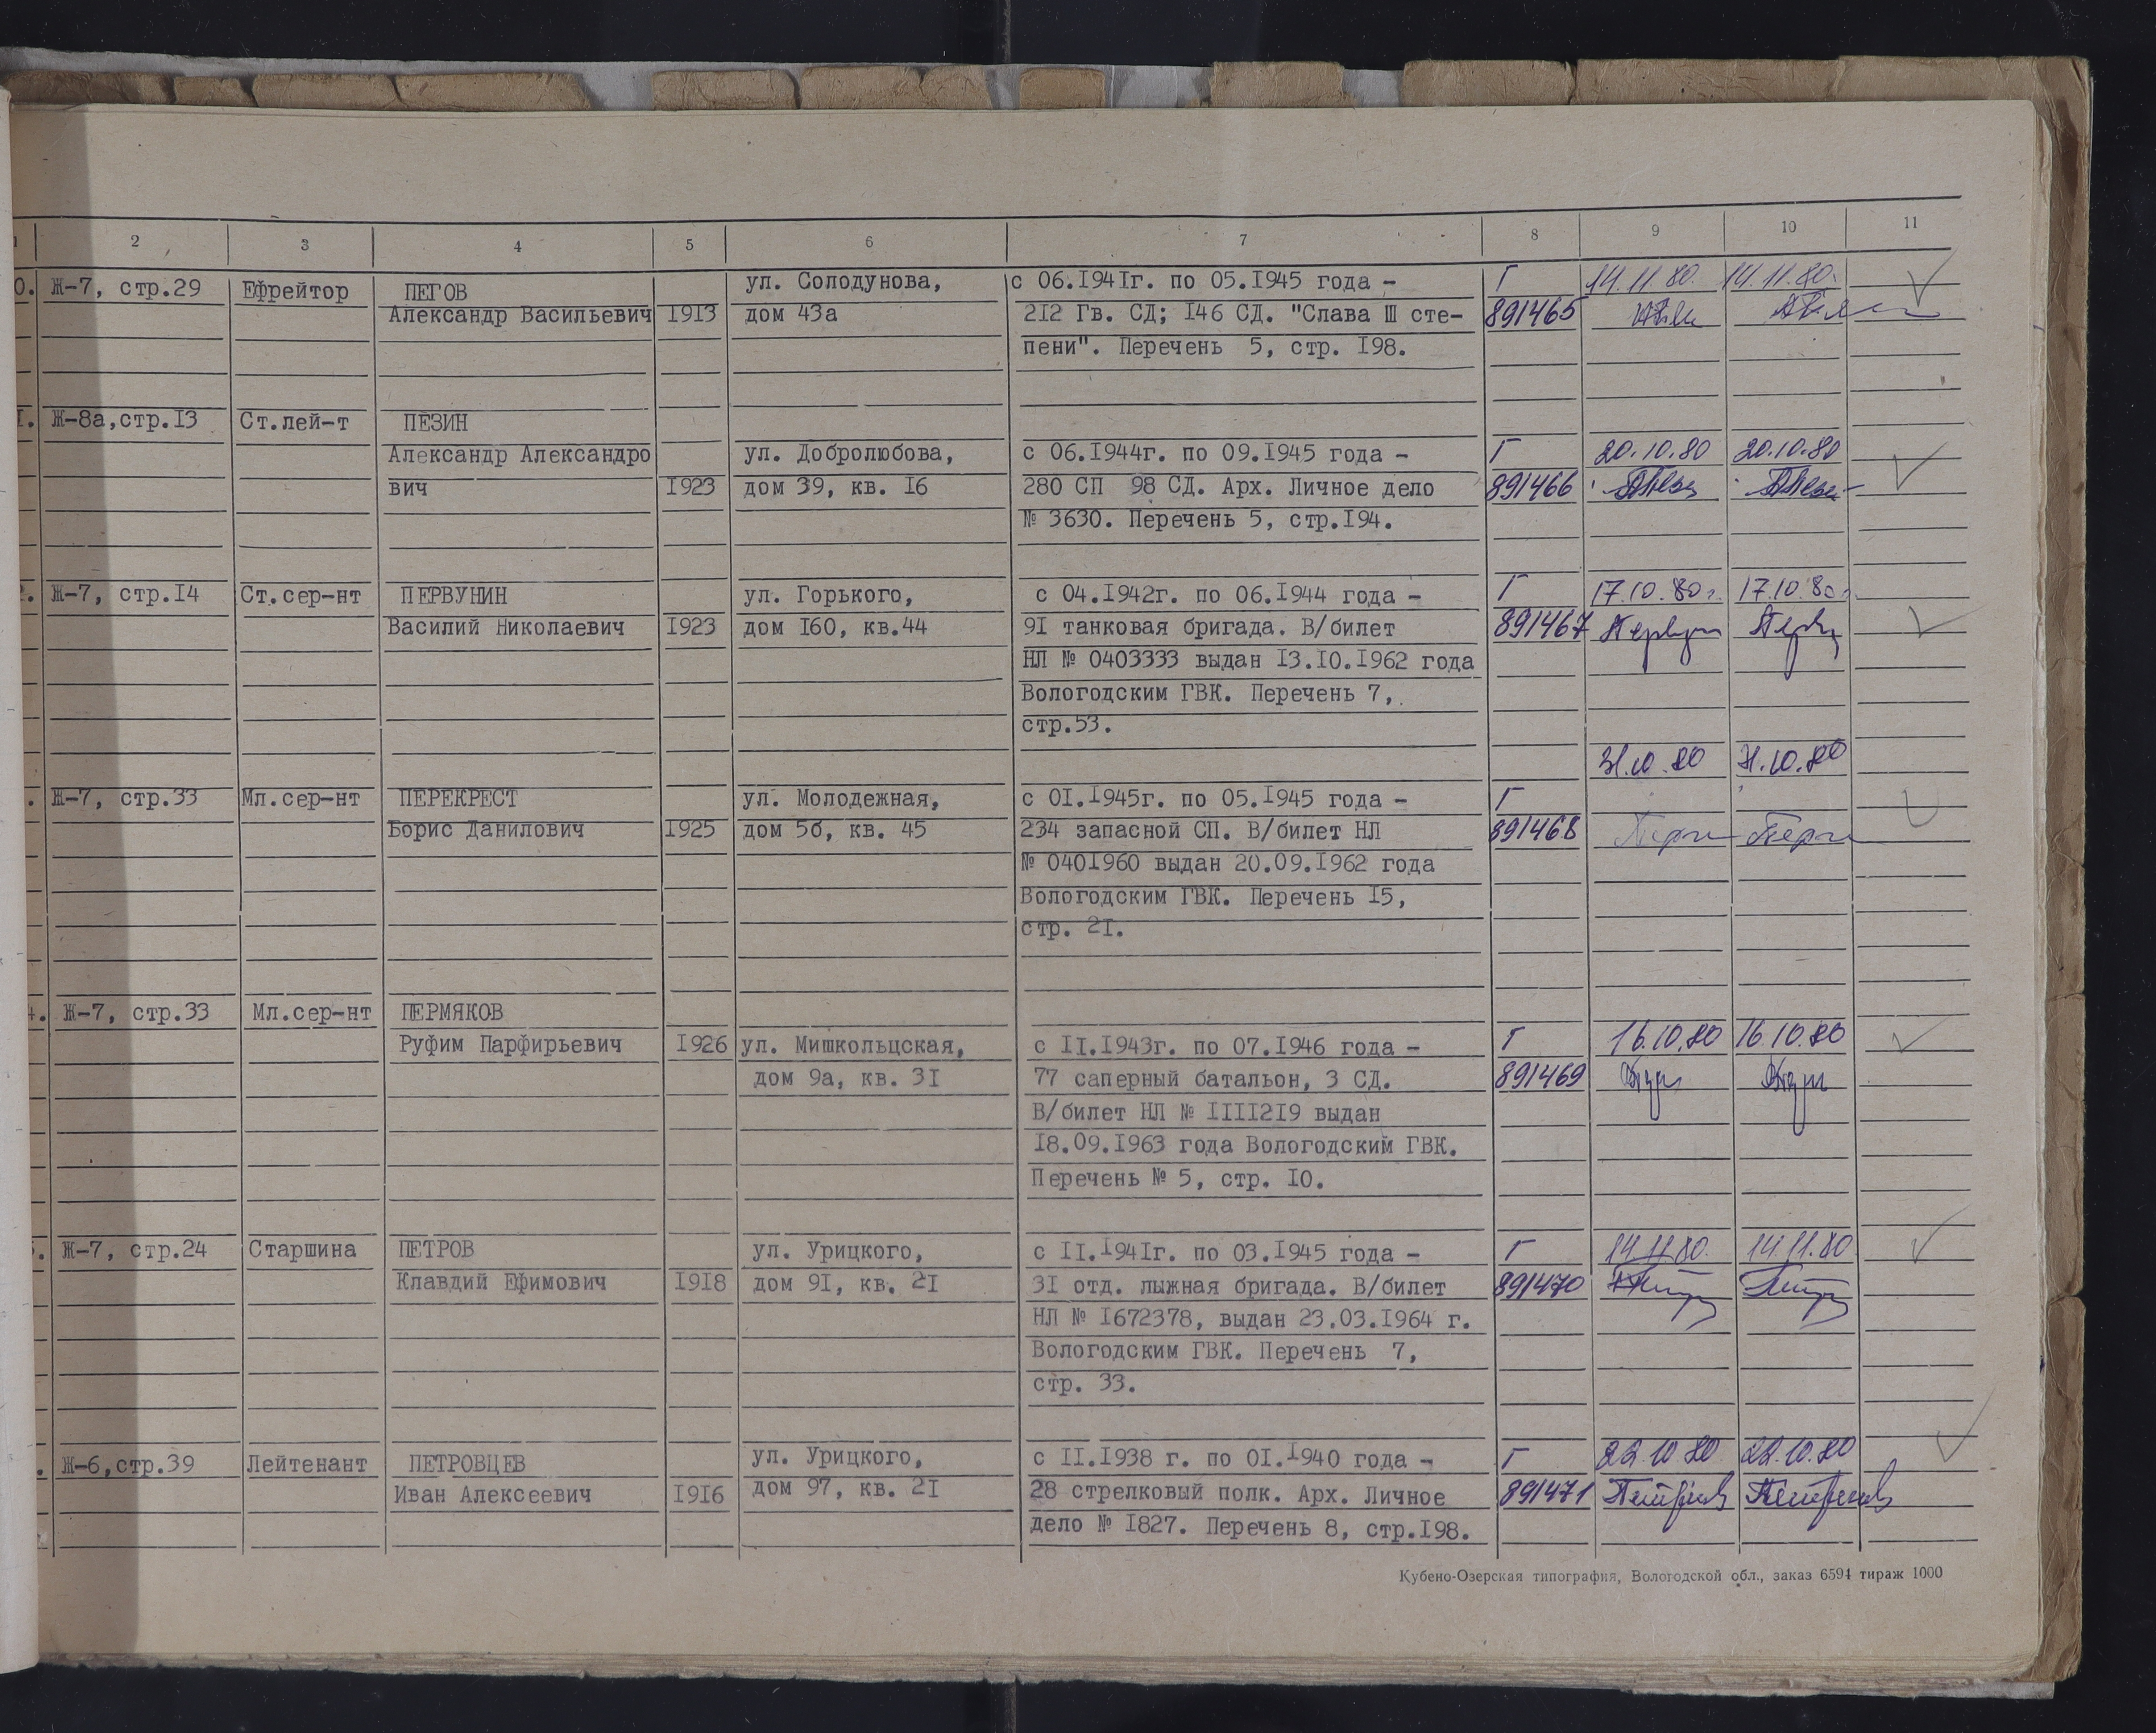 2 3 4 5 6 7 8 9 10 11
0. Ж-7, стр.29 Ефрейтор ПЕГОВ ул. Солодунова, с 06.1941г. по 05.1945 года - Г 14.11.80. 14.11.80.
Александр Васильевич 1913 дом 43а 212 Гв. СД; 146 СД. "Слава Ш сте- 891465
пени". Перечень 5, стр. 198.
1. Ж-8а,стр.13 Ст.лей-т ПЕЗИН
Александр Александро ул. Добролюбова, с 06.1944г. по 09.1945 года - Г 20.10.80 20.10.80
вич 1923 дом 39, кв. 16 280 СП 98 СД. Арх. Личное дело 891466
№ 3630. Перечень 5, стр.194.
Ж-7, стр.14 Ст.сер-нт ПЕРВУНИН ул. Горького, с 04.1942г. по 06.1944 года - Г 17.10.80г. 17.10.80г.
Василий Николаевич 1923 дом 160, кв.44 91 танковая бригада. В/билет 891467
НЛ № 0403333 выдан 13.10.1962 года
Вологодским ГВК. Перечень 7,
стр.53.
31.10.80 31.10.80
Ж-7, стр.33 Мл.сер-нт ПЕРЕКРЕСТ ул. Молодежная, с 01.1945г. по 05.1945 года - Г
Борис Данилович 1925 дом 5б, кв. 45 234 запасной СП. В/билет НЛ 891468
№ 0401960 выдан 20.09.1962 года
Вологодским ГВК. Перечень 15,
стр. 21.
4. Ж-7, стр.33 Мл.сер-нт ПЕРМЯКОВ
Руфим Парфирьевич 1926 ул. Мишкольцская, с 11.1943г. по 07.1946 года - Г 16.10.80 16.10.80
дом 9а, кв. 31 77 саперный батальон, 3 СД. 891469
В/билет НЛ № 1111219 выдан
18.09.1963 года Вологодским ГВК.
Перечень № 5, стр. 10.
Ж-7, стр.24 Старшина ПЕТРОВ ул. Урицкого, с 11.1941г. по 03.1945 года - Г 14.11.80. 14.11.80
Клавдий Ефимович 1918 дом 91, кв. 21 31 отд. лыжная бригада. В/билет 891470
НЛ № 1672378, выдан 23.03.1964 г.
Вологодским ГВК. Перечень 7,
стр. 33.
Ж-6,стр.39 Лейтенант ПЕТРОВЦЕВ ул. Урицкого, с 11.1938 г. по 01.1940 года - Г 22.10.80 22.10.80
Иван Алексеевич 1916 дом 97, кв. 21 28 стрелковый полк. Арх. Личное 891471
дело № 1827. Перечень 8, стр.198.
Кубено-Озерская типография, Вологодской обл., заказ 6594 тираж 1000